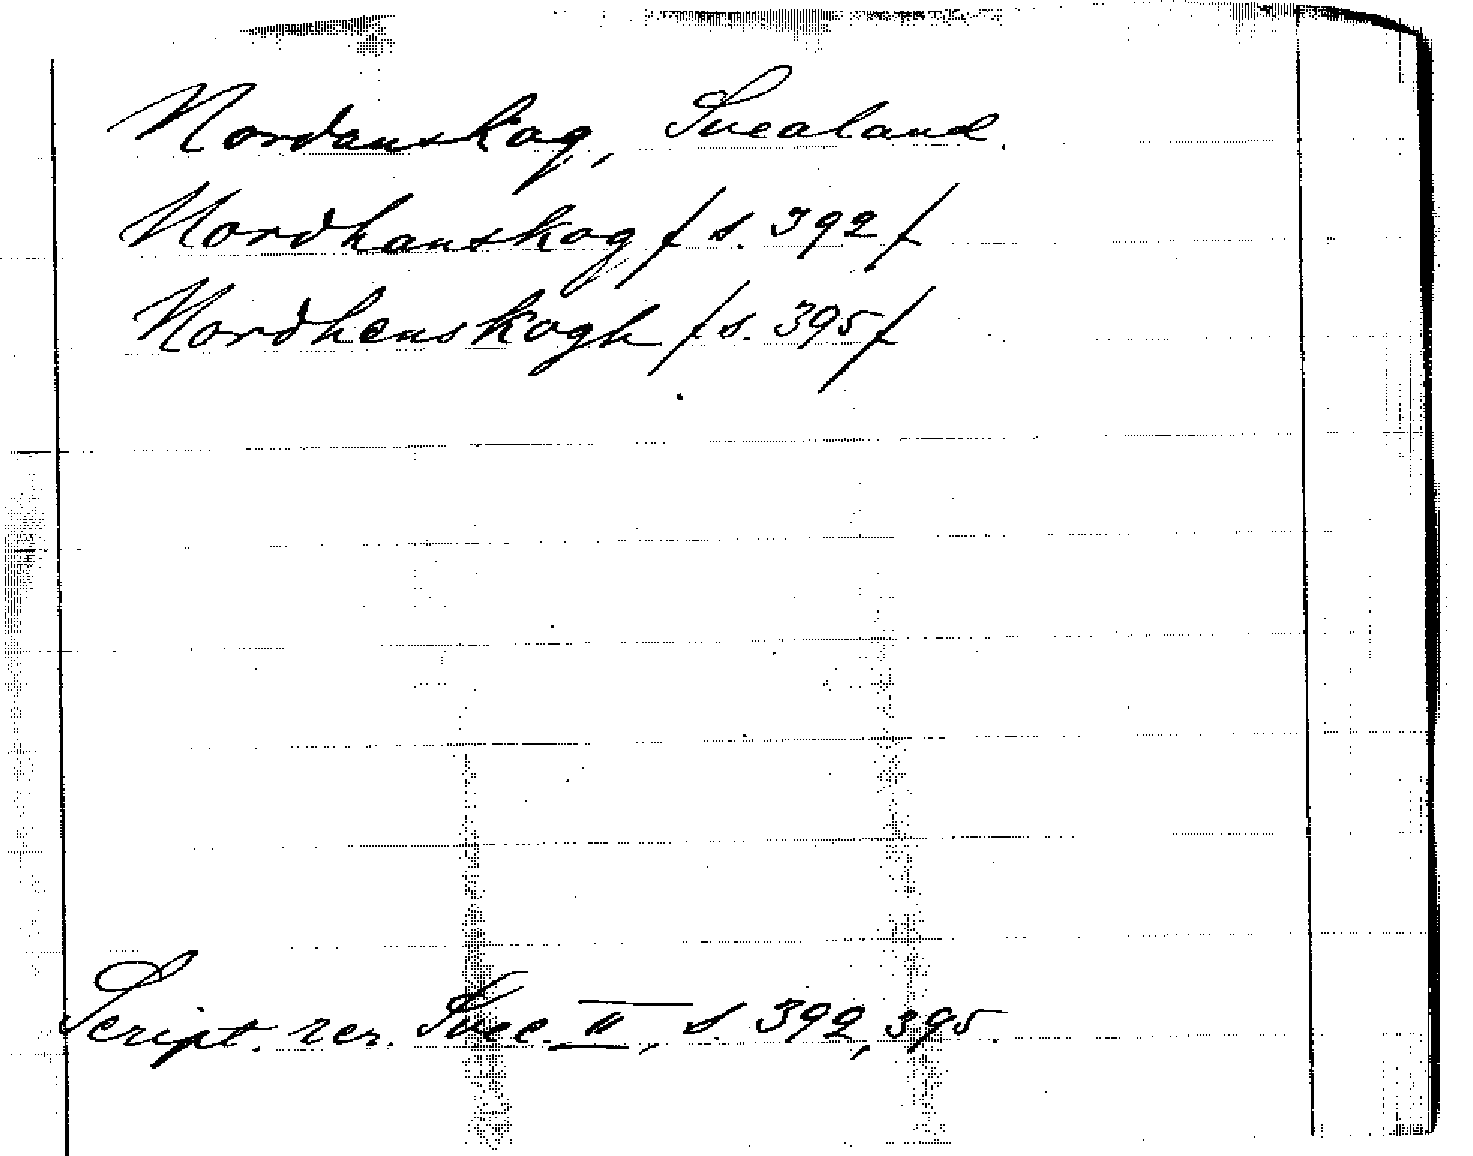 Nordanskog, Svealand.
Nordhanskog / s. 392 /
Nordhenskogh / s. 395 /
Script. rer. Svec. II, s. 392, 395.